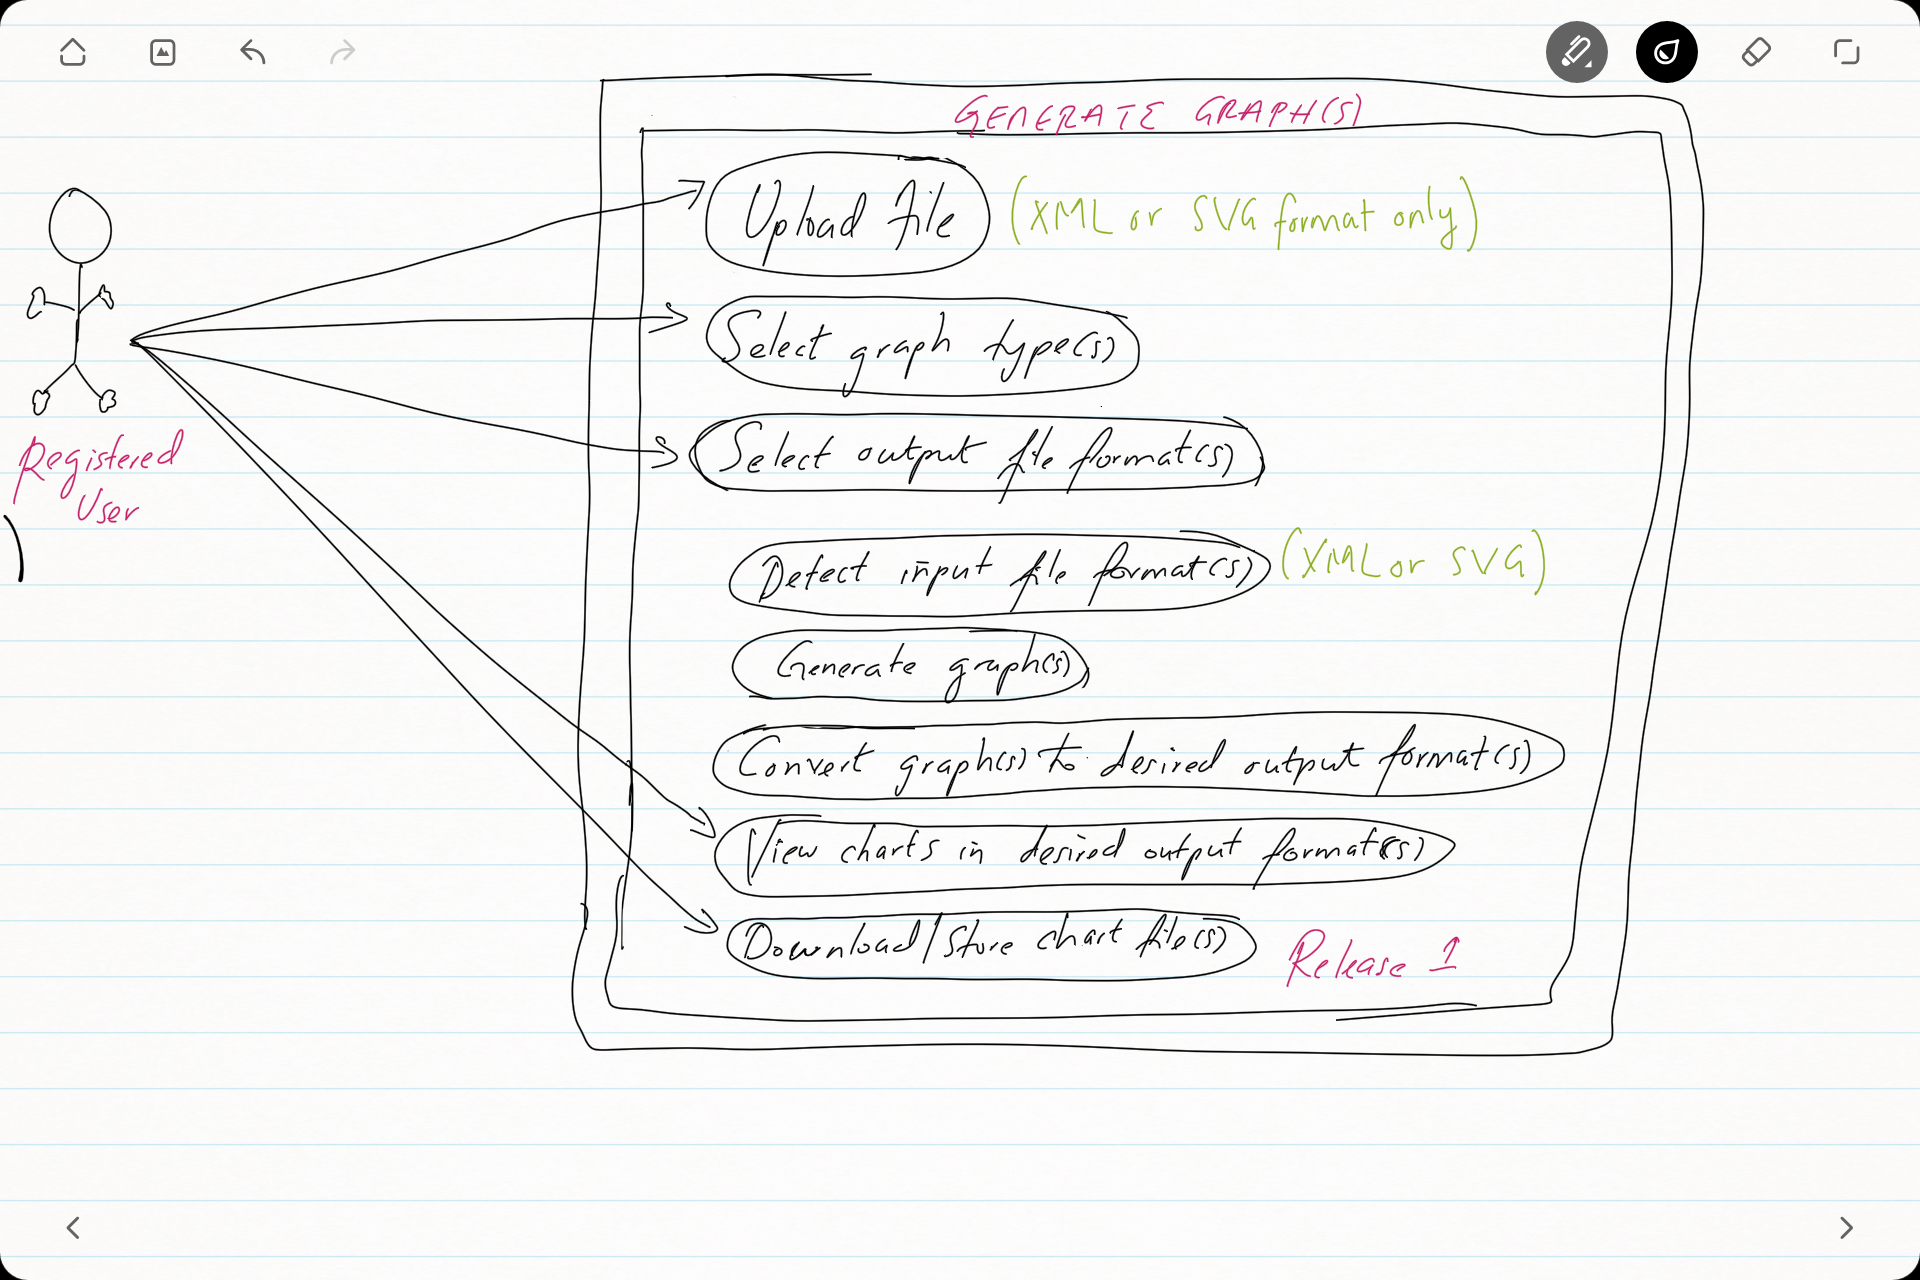 GENERATE GRAPH(S)
Upload file (XML or SVG format only)
Select graph type(s)
Select output file format(s)
Registered
User
Detect input file format(s) (XML or SVG)
Generate graph(s)
Convert graph(s) to desired output format(s)
View charts in desired output format(s)
Download/Store chart file(s)
Release 1